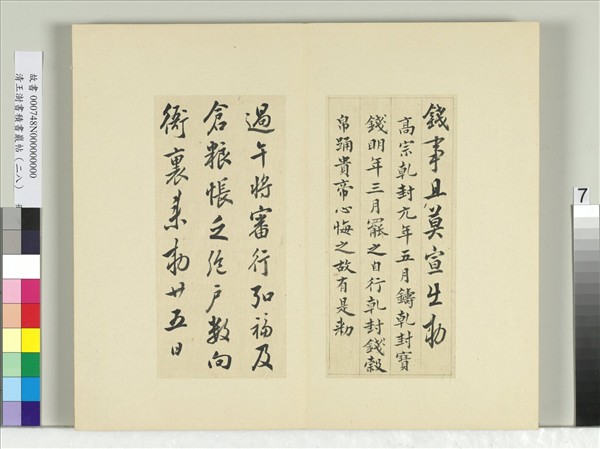 錢事且莫宣出勅
高宗乾封元年五月鑄乾封寶
錢明年三月罷之自行乾封錢穀
帛踊貴帝心悔之故有是勅
過午將審行弘福及
倉粮帳乏絕戶數向
衙裏来勅廿五日
故書 000748N000000000
清王澍書積書巖帖（二八）
7